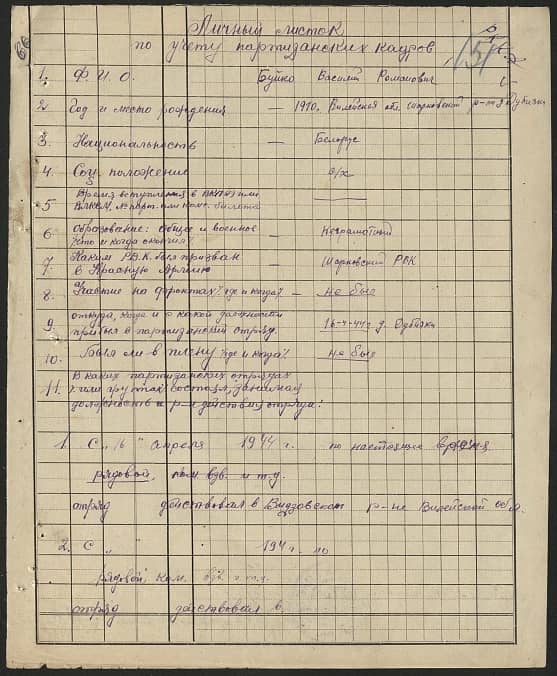 Личный листок
по учету партизанских кадров
66
151
1. Ф. И. О. Буйко Василий Романович
2. Год и место рождения — 1910. Вилейская обл. Шарковский р-н д. Дубинка
3. Национальность — Белорус
4. Соц. положение с/х
Время вступления в ВКП(б) или
5 ВЛКСМ, № парт. или комс. билета —
6 Образование: общее и военное — Неграмотный
что и когда окончил
7 Каким Р.В.К. был призван — Шарковский РВК
в Красную Армию
8. на фронтах? где и когда? — не был
откуда, когда и с какой должности
9 прибыл в партизанский отряд. 16-4-44 г. д.
10. Был ли в плену где и когда? не был
В каких партизанских отрядах
11. или группах состоял, занимая
должность и р-н действия отряда:
1. С „16" апреля 1944 г. по настоящее время
рядовой, ком взв. и т.д.
отряд действовал в Видзовском р-не Вилейской обл.
2. С „ " 194 г. по
рядовой, ком. взв. и т.д.
отряд действовал в